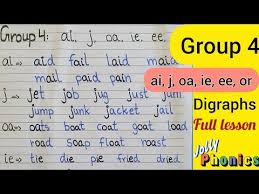 Group 4: ai, j, oa, ie, ee,
ai → aid fail laid maid
mail paid pain
j → jet job jug just
jump junk jacket jail
oa → oats boat goat load
road soap float roast
ie → tie die pie fried dried
Group 4
ai, j, oa, ie, ee, or
Digraphs
Full lesson
Jolly
Phonics